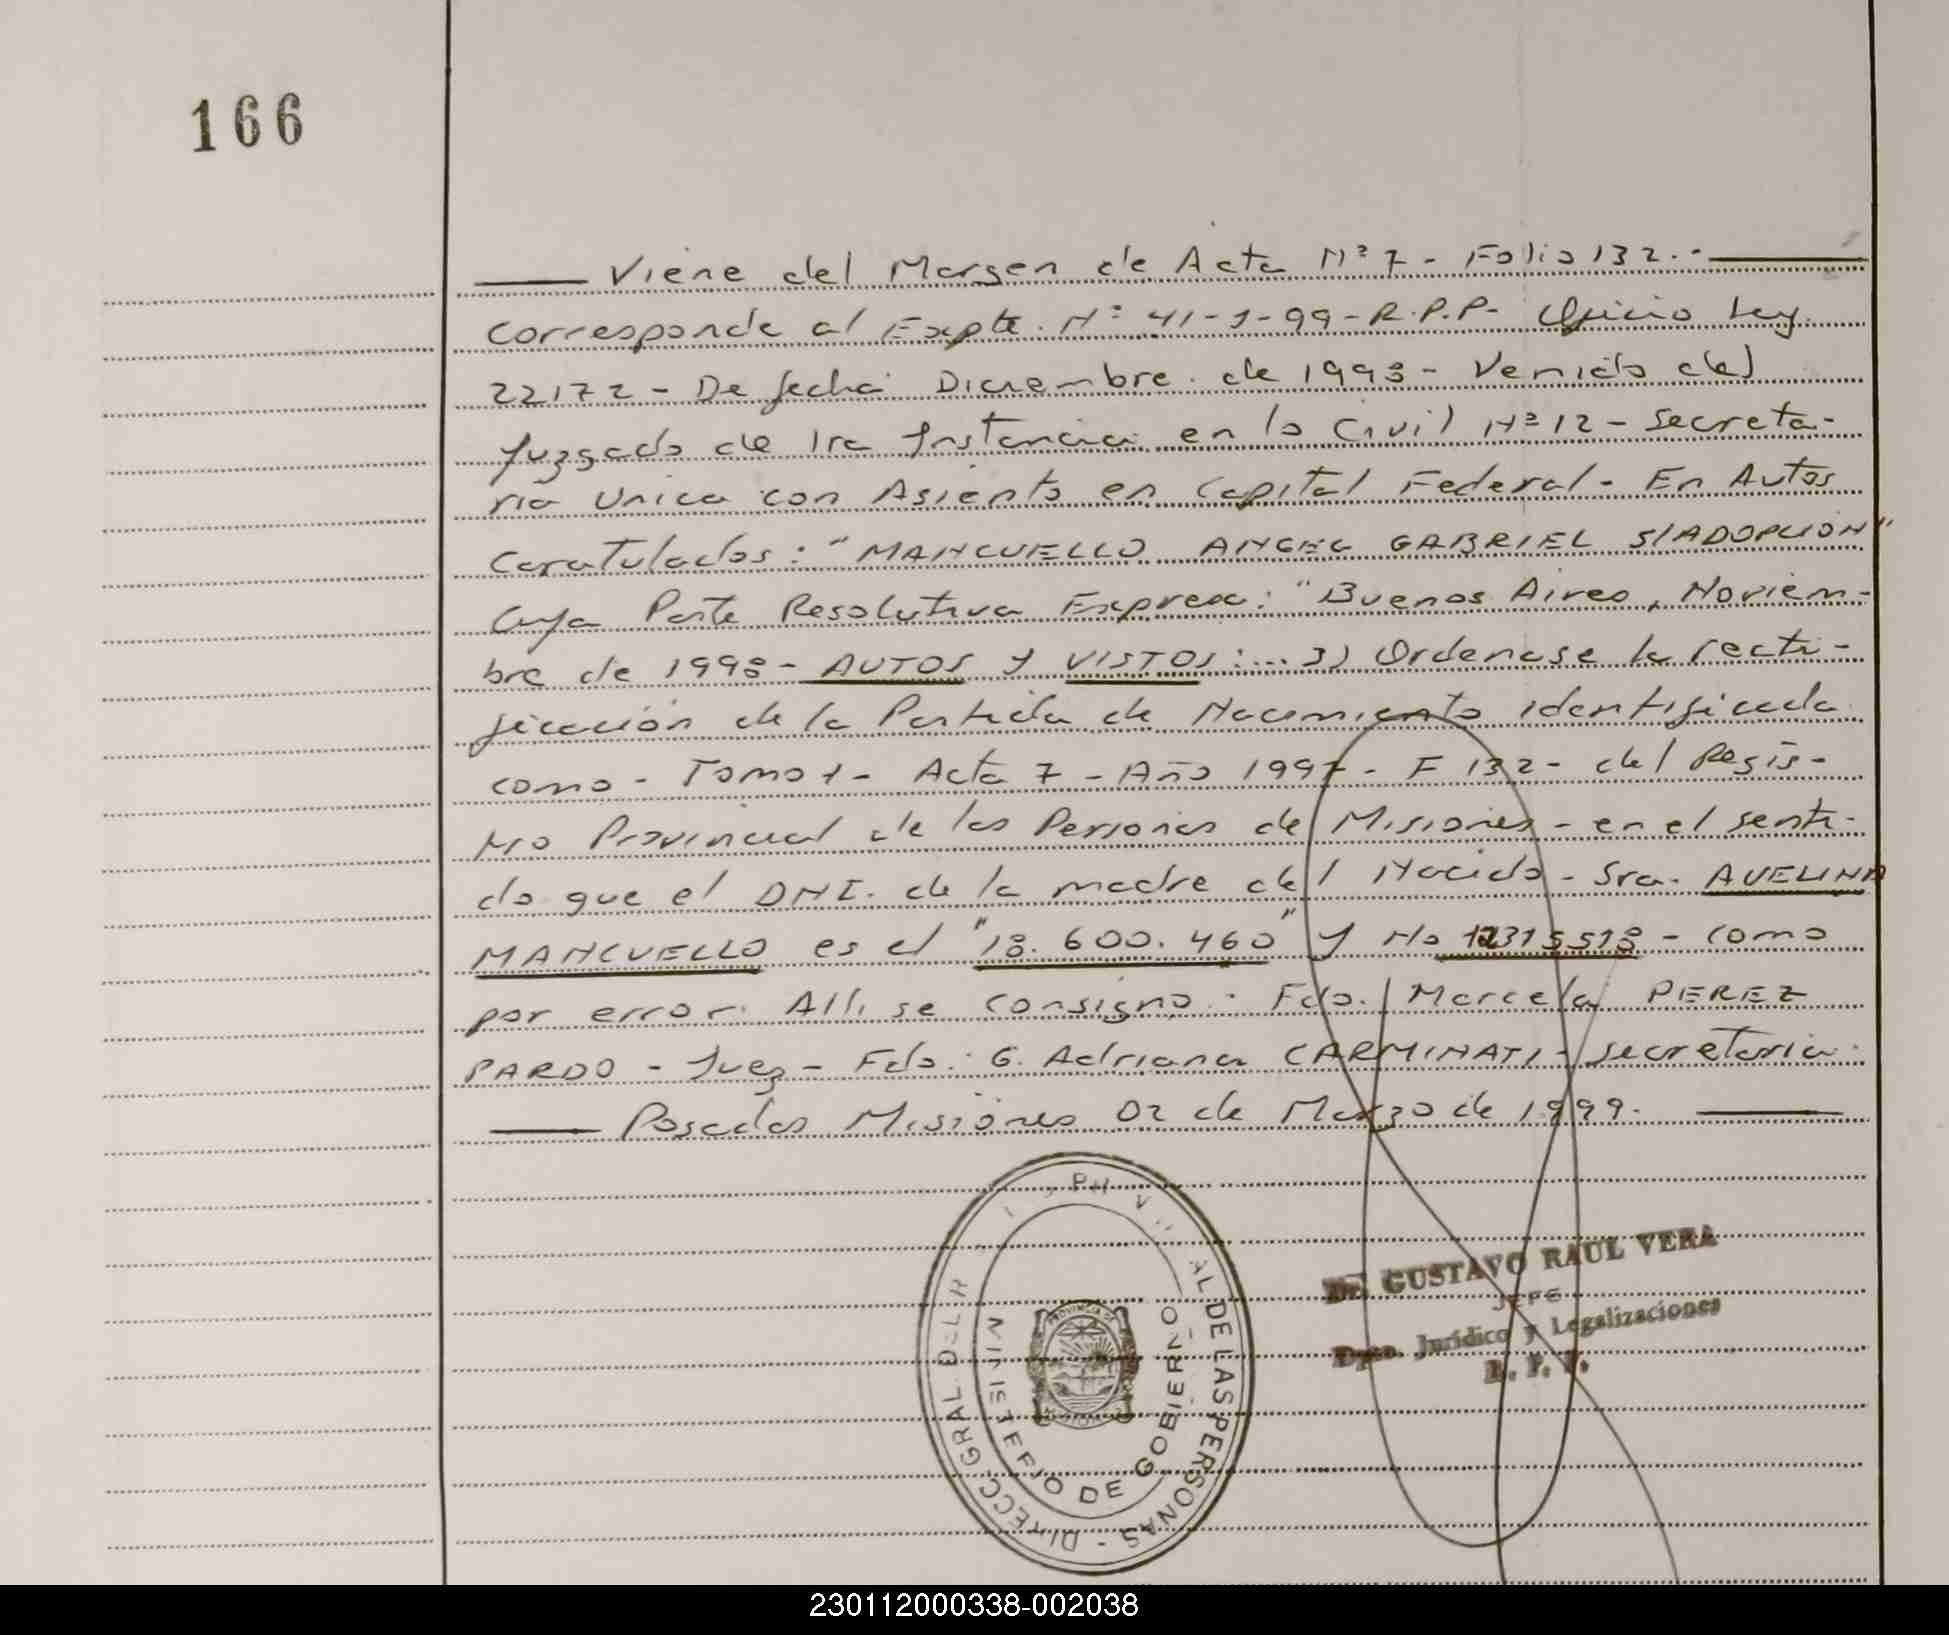 166
Viene del Margen de Acta Nº 7 - Folio 132.-
corresponde al Expte. Nº 41-J-99-R.P.P- Oficio Ley
22172 - De fecha Diciembre de 1998 - Venido del
Juzgado de 1ra Instancia en lo Civil Nº 12 - Secreta-
ria Unica con Asiento en Capital Federal - En Autos
Caratulados: "MANCUELLO ANGEL GABRIEL S/ADOPCION"
Cuya Parte Resolutiva Expresa: "Buenos Aires, Noviem-
bre de 1998 - AUTOS Y VISTOS:... 3) Ordenase la recti-
ficación de la Partida de Nacimiento identificada
como - Tomo 1 - Acta 7 - Año 1997 - F 132 - del Regis-
tro Provincial de las Personas de Misiones - en el senti-
do que el DNI. de la madre del Nacido - Sra. AVELINA
MANCUELLO es el "18.600.460" y No 12315518 - como
por error Alli se consigno.- Fdo. Marcela PEREZ
PARDO - Juez - Fdo: G. Adriana CARMINATI - secretaria.
Posadas Misiones 02 de Marzo de 1999.
DIRECC GRAL DEL R AL DE LAS PERSONAS -
MINISTERIO DE GOBIERNO
PROVINCIA DE
MISIONES
Dr. GUSTAVO RAUL VERA
JEFE
Dpto. Jurídico y Legalizaciones
R. P. P.
230112000338-002038